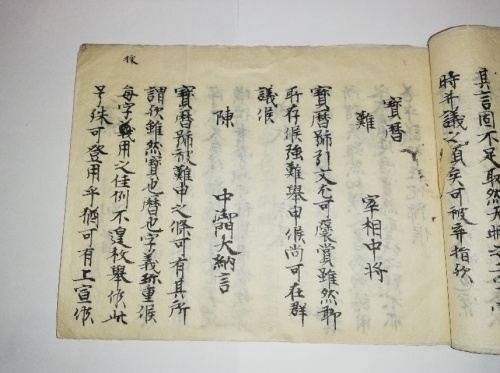 其言固不足取然天明之
時却議之負矣可被弃指歟
寶暦
難 宰相中将
寶暦號引文尤可褒賞雖然聊
所存候強難舉申候尚可在群
議候
陳 中御門大納言
寶暦號被難申之條可有其所
謂歟雖然寶也暦也字義珎重候
毎字被用之佳例不遑枚舉候此
号殊可登用乎猶可有上宣候